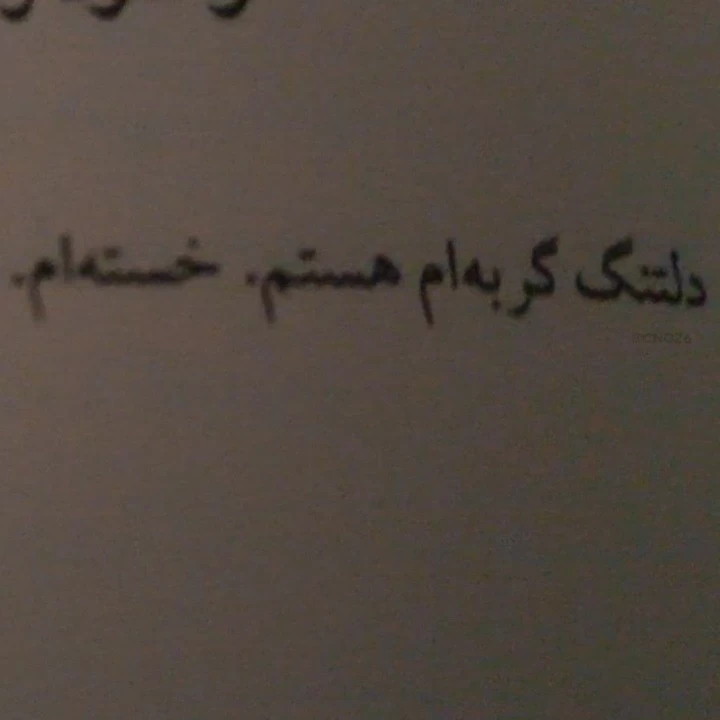 دلتنگ گربه‌ام هستم. خسته‌ام.
@CNO26